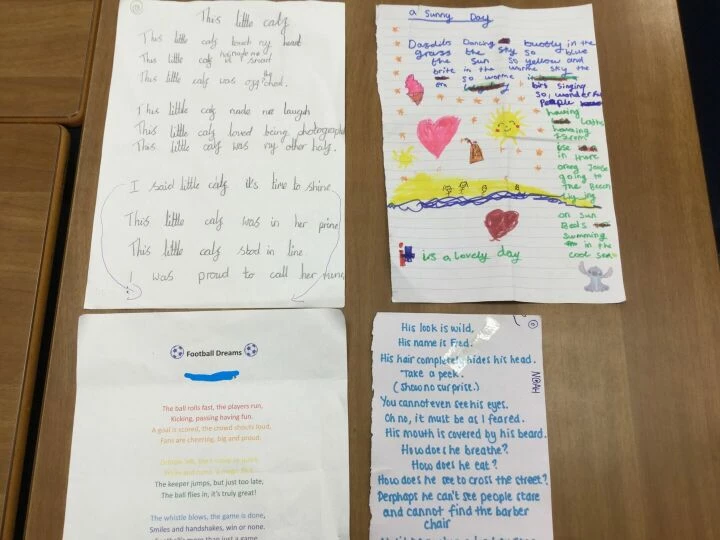 This little calf
This little calf touch my heart
This little calf was made me smart
This little calf was off the chart.
This little calf made me laugh
This little calf loved being photograph
This little calf was my other half.
I said little calf it's time to shine
This little calf was in her prime
This little calf stod in line
I was proud to call her mine
a Sunny Day
Daffdils Dancing in the
grass the sky so blue
the sun so yellow and
brite in the worme sky the
so worme
birs singing
so wonderful
People
having
Latte
howing
ise
in there
oreng Jouse
going to
The Beech
Liy ing
on Sun
Beds
Swimming
in the
cool sea
it is a lovely day
Football Dreams
The ball rolls fast, the players run,
Kicking, passing having fun.
A goal is scored, the crowd shouts loud,
Fans are cheering, big and proud.
The keeper jumps, but just too late,
The ball flies in, it's truly great!
The whistle blows, the game is done,
Smiles and handshakes, win or none.
more than just a game
NOAH
His look is wild.
His name is Fred.
His hair completely hides his head.
Take a peek.
(Show no surprise.)
You cannot even see his eyes.
Oh no, it must be as I feared.
His mouth is covered by his beard.
How does he breathe?
How does he eat?
How does he see to cross the street?
Perphaps he can't see people stare
and cannot find the barber
chair